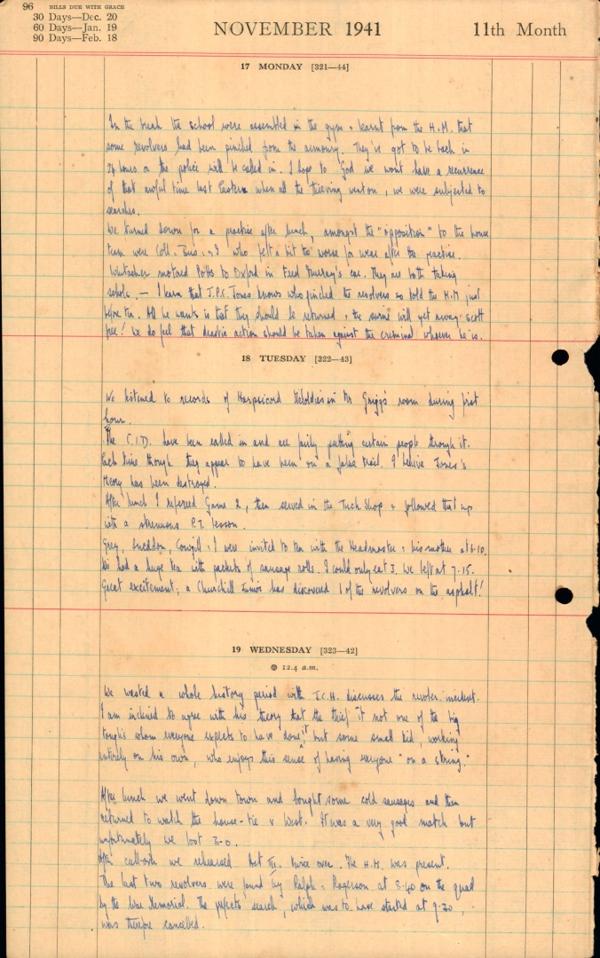 96 BILLS DUE WITH GRACE
30 Days—Dec. 20
60 Days—Jan. 19
90 Days—Feb. 18
NOVEMBER 1941
11th Month
17 MONDAY [321—44]
In the break the school were assembled in the gym & learnt from the H.M. that
some revolvers had been pinched from the armoury. They've got to be back in
24 hours or the police will be called in. I hope to God we wont have a recurrence
of that awful time last Eastern when all the thieving went on, we were subjected to
searches.
We turned down for a practice after lunch, amongst the "opposition" to the house
team were Coll, & I who felt a bit the worse for wear after the practice.
motored Potts to Oxford in Fred Murray's car. They are both taking
schols. — I learn that J.P.S. Jones knows who pinched the revolvers so told the H.M. just
before tea. All he wants is that they should be returned & the swine will get away scott
free! We do feel that drastic action should be taken against the criminal whoever he is.
18 TUESDAY [322—43]
We listened to records of Harpsicord Melodies in Mr Griggs' room during first
hour.
The C.I.D. have been called in and are fairly putting certain people through it.
Each time though they appear to have been on a false trail. I believe Jones's
theory has been destroyed.
After lunch I refereed Game 2, then served in the Tuck Shop & followed that up
with a strenuous P.T. lesson.
Grey, Sneddon, Cowgill & I were invited to tea with the Headmaster & his mother at 6.10.
We had a huge tea with packets of sausage rolls. I could only eat 3. We left at 7.15.
Great excitement; a Churchill Junior has discovered 1 of the revolvers on the asphalt!
19 WEDNESDAY [323—42]
12.4 a.m.
We wasted a whole history period with J.C.H. discusses the revolver incident.
I am inclined to agree with his theory that the thief it not one of the big
toughs whom everyone expects to have done it but some small kid, working
entirely on his own, who enjoys this sense of having everyone "on a string."
After lunch we went down town and bought some cold sausages and then
returned to watch the house-tie v West. It was a very good match but
unfortunately we lost 3-0.
After call-over we rehearsed Act III. twice over. The H.M. was present.
The last two revolvers were found by Ralph & Rogerson at 8.40 on the quad
by the War Memorial. The prefects search, which was to have started at 9.30,
was therefore cancelled.